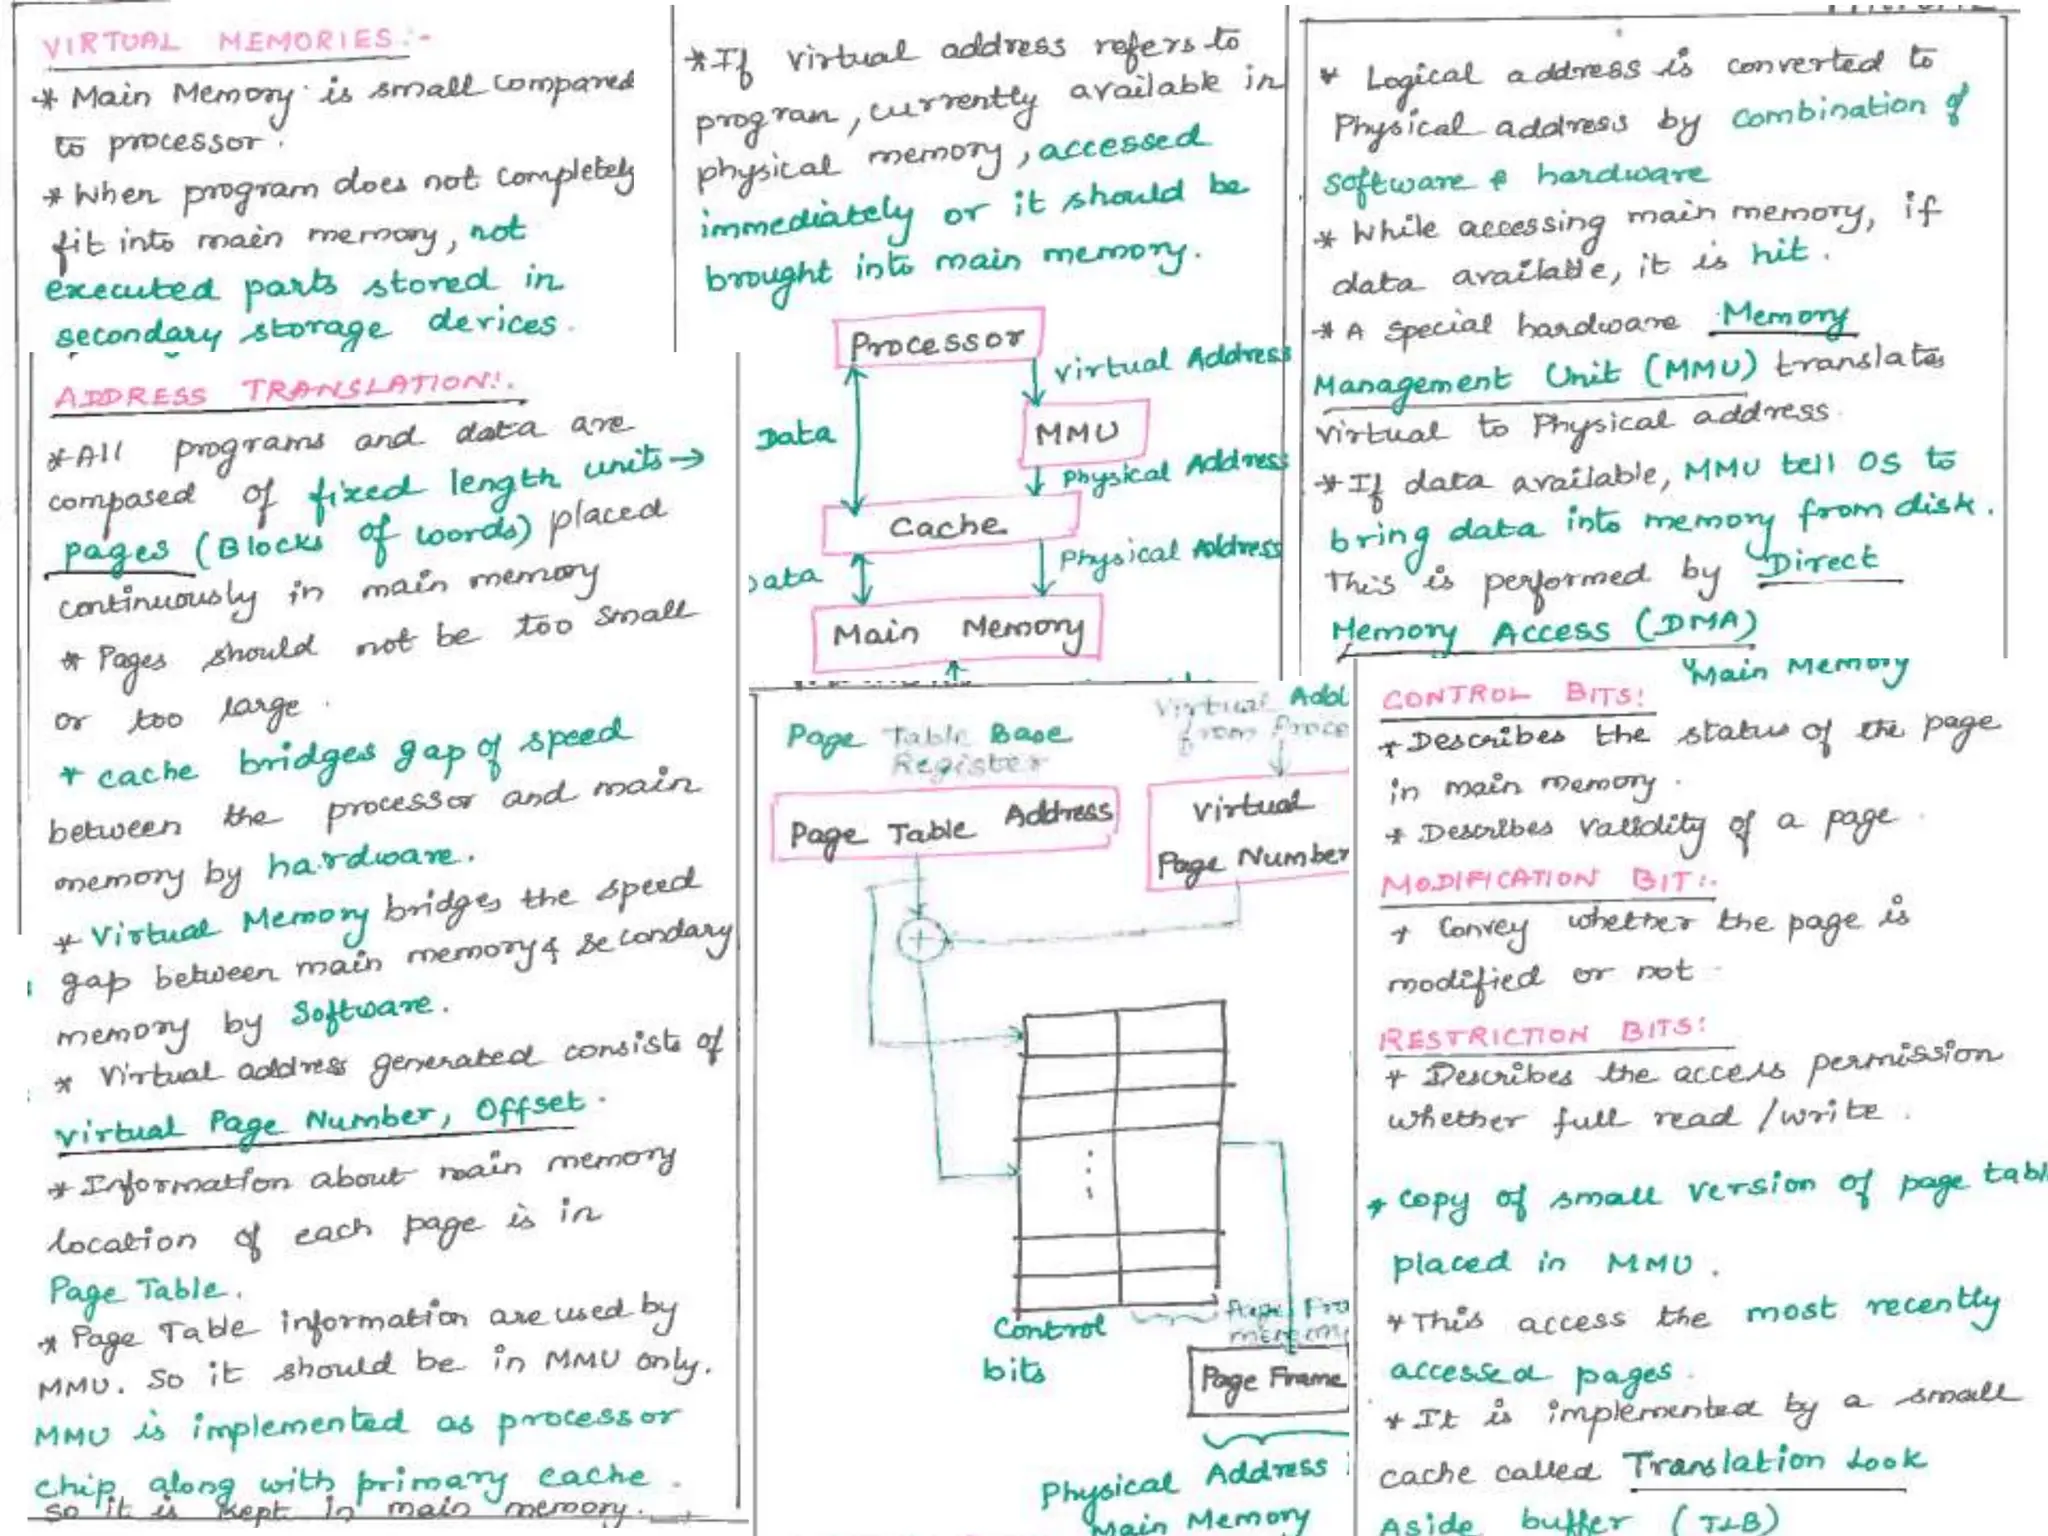 VIRTUAL MEMORIES:-
* Main Memory is small compared
to processor.
* When program does not completely
fit into main memory, not
executed parts stored in
secondary storage devices.
ADDRESS TRANSLATION:.
* All programs and data are
composed of fixed length units →
pages (Blocks of words) placed
continuously in main memory
* Pages should not be too small
or too large.
* cache bridges gap of speed
between the processor and main
memory by hardware.
* Virtual Memory bridges the speed
gap between main memory & secondary
memory by Software.
* Virtual address generated consists of
Virtual Page Number, Offset.
* Information about main memory
location of each page is in
Page Table.
* Page Table information are used by
MMU. So it should be in MMU only.
MMU is implemented as processor
chip along with primary cache.
So it is kept in main memory.
* If virtual address refers to
program, currently available in
physical memory, accessed
immediately or it should be
brought into main memory.
Processor
Virtual Address
Data
MMU
Physical Address
Cache
Physical Address
Data
Main Memory
Page Table Base
Register
Virtual Add
from Proce
Page Table Address
Virtual
Page Number
Control
bits
Page Fra
memory
Page Frame
Physical Address
Main Memory
* Logical address is converted to
Physical address by combination of
software & hardware
* While accessing main memory, if
data available, it is hit.
* A special hardware Memory
Management Unit (MMU) translates
virtual to Physical address.
* If data available, MMU tell OS to
bring data into memory from disk.
This is performed by Direct
Memory Access (DMA)
Main Memory
CONTROL BITS:
* Describes the status of the page
in main memory.
* Describes validity of a page.
MODIFICATION BIT:.
* Convey whether the page is
modified or not.
RESTRICTION BITS:
* Describes the access permission
whether full read /write.
* Copy of small version of page tabl
placed in MMU.
* This access the most recently
accessed pages.
* It is implemented by a small
cache called Translation Look
Aside buffer (TLB)